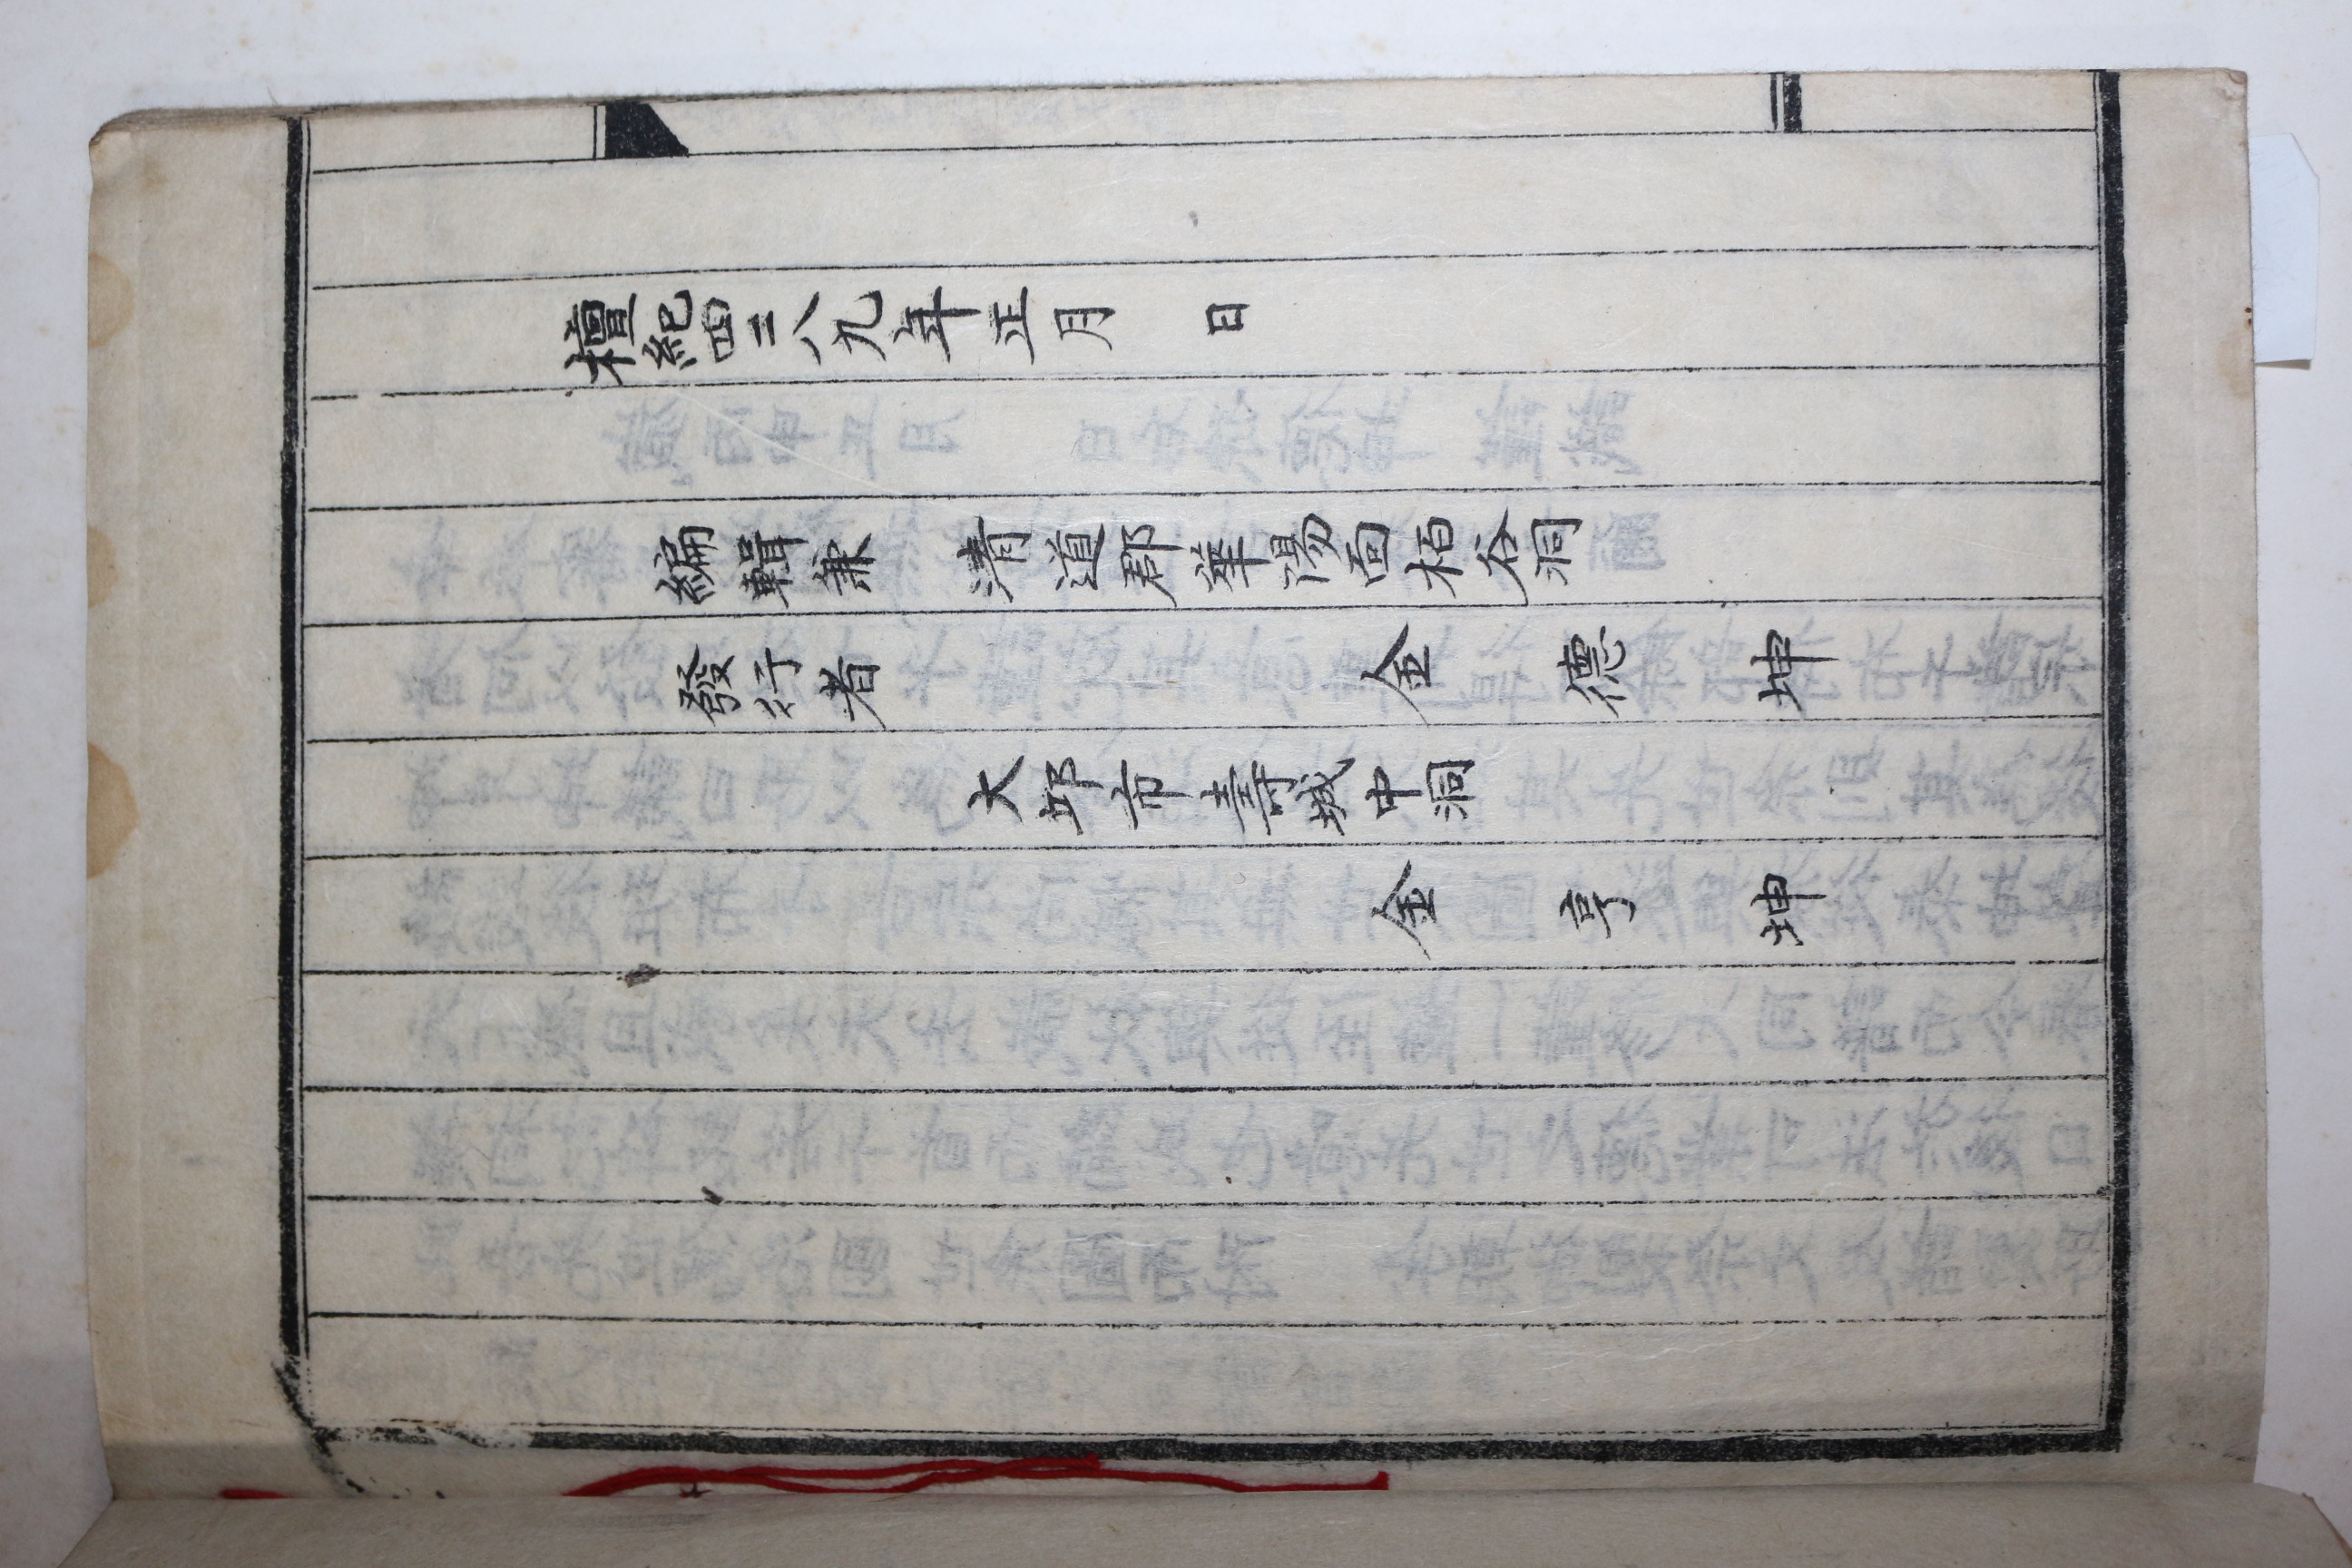 檀紀四二八九年正月　日
編輯兼　清道郡華陽面栢谷洞
發行者　金德坤
大邱市壽城中洞
金亨坤